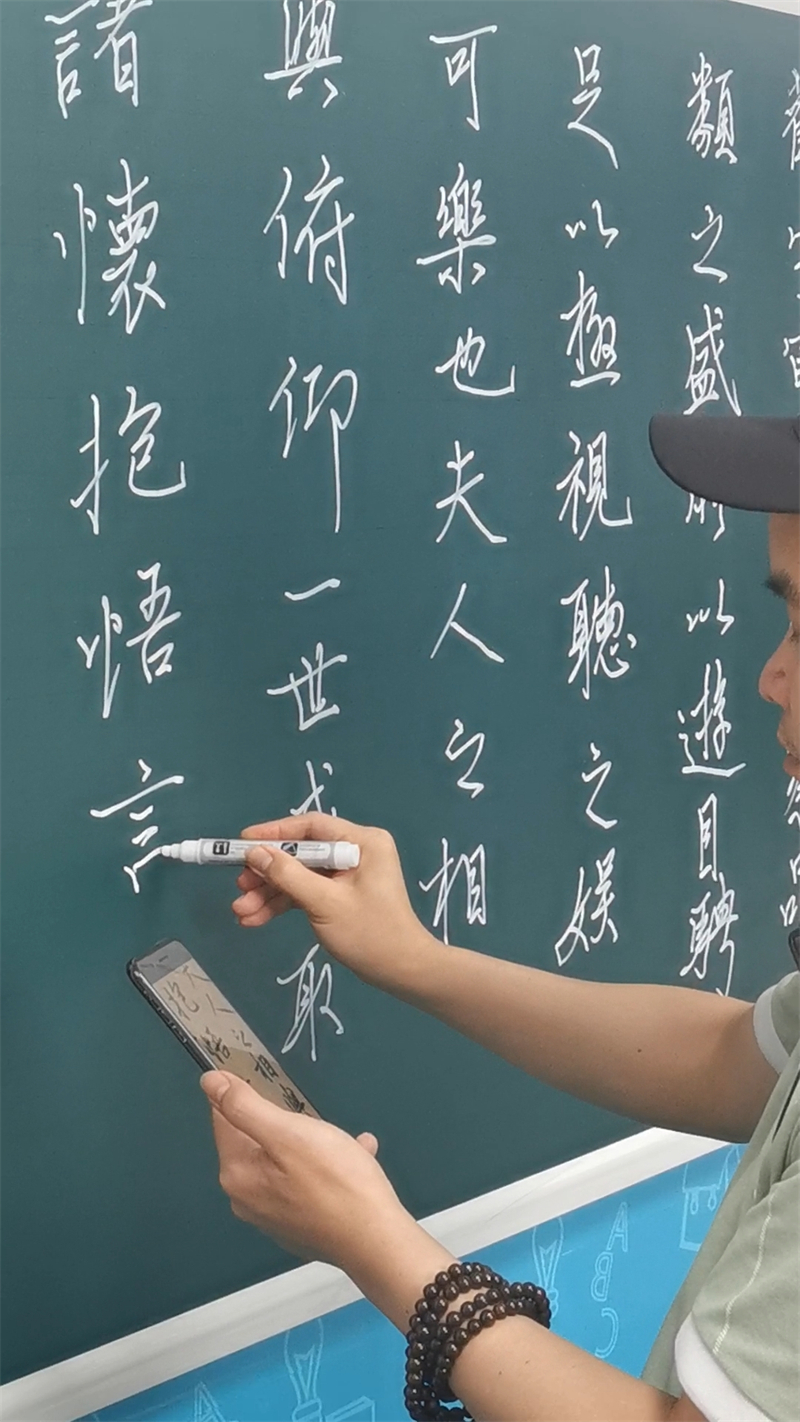 類之盛所以遊目騁
足以極視聽之娱
可樂也夫人之相
與俯仰一世或取
諸懷抱悟言